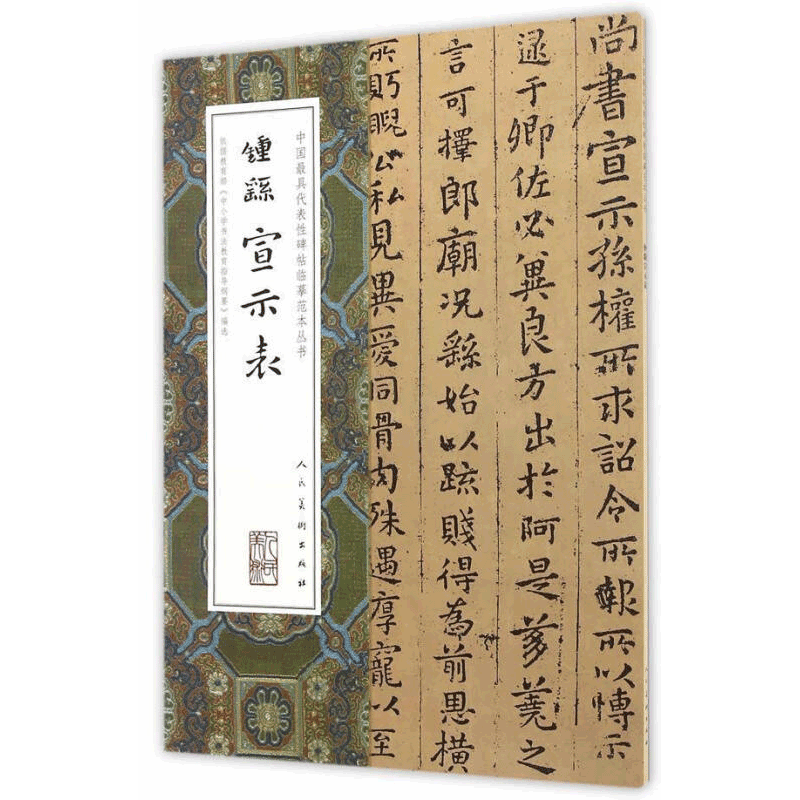 尚書宣示孫權所求詔令所報所以博示
逮于卿佐必冀良方出於阿是芻蕘之
言可擇郎廟況繇始以疏賤得為前恩橫
所眄睨公私見異愛同骨肉殊遇厚寵以至
中国最具代表性碑帖临摹范本丛书
鍾繇 宣示表
依据教育部《中小学书法教育指导纲要》编选
人民美術出版社
人民美术